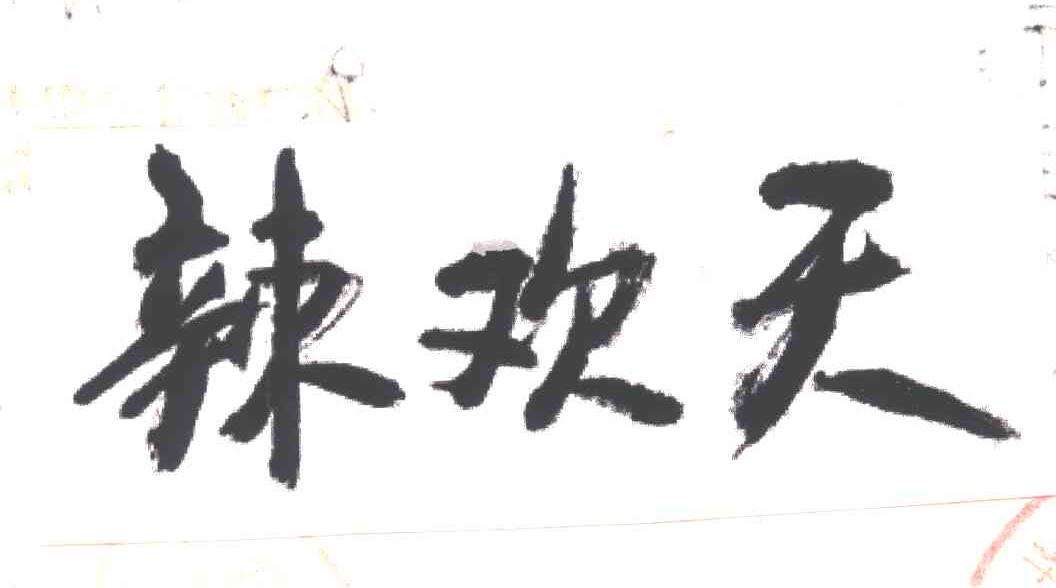 辣欢天